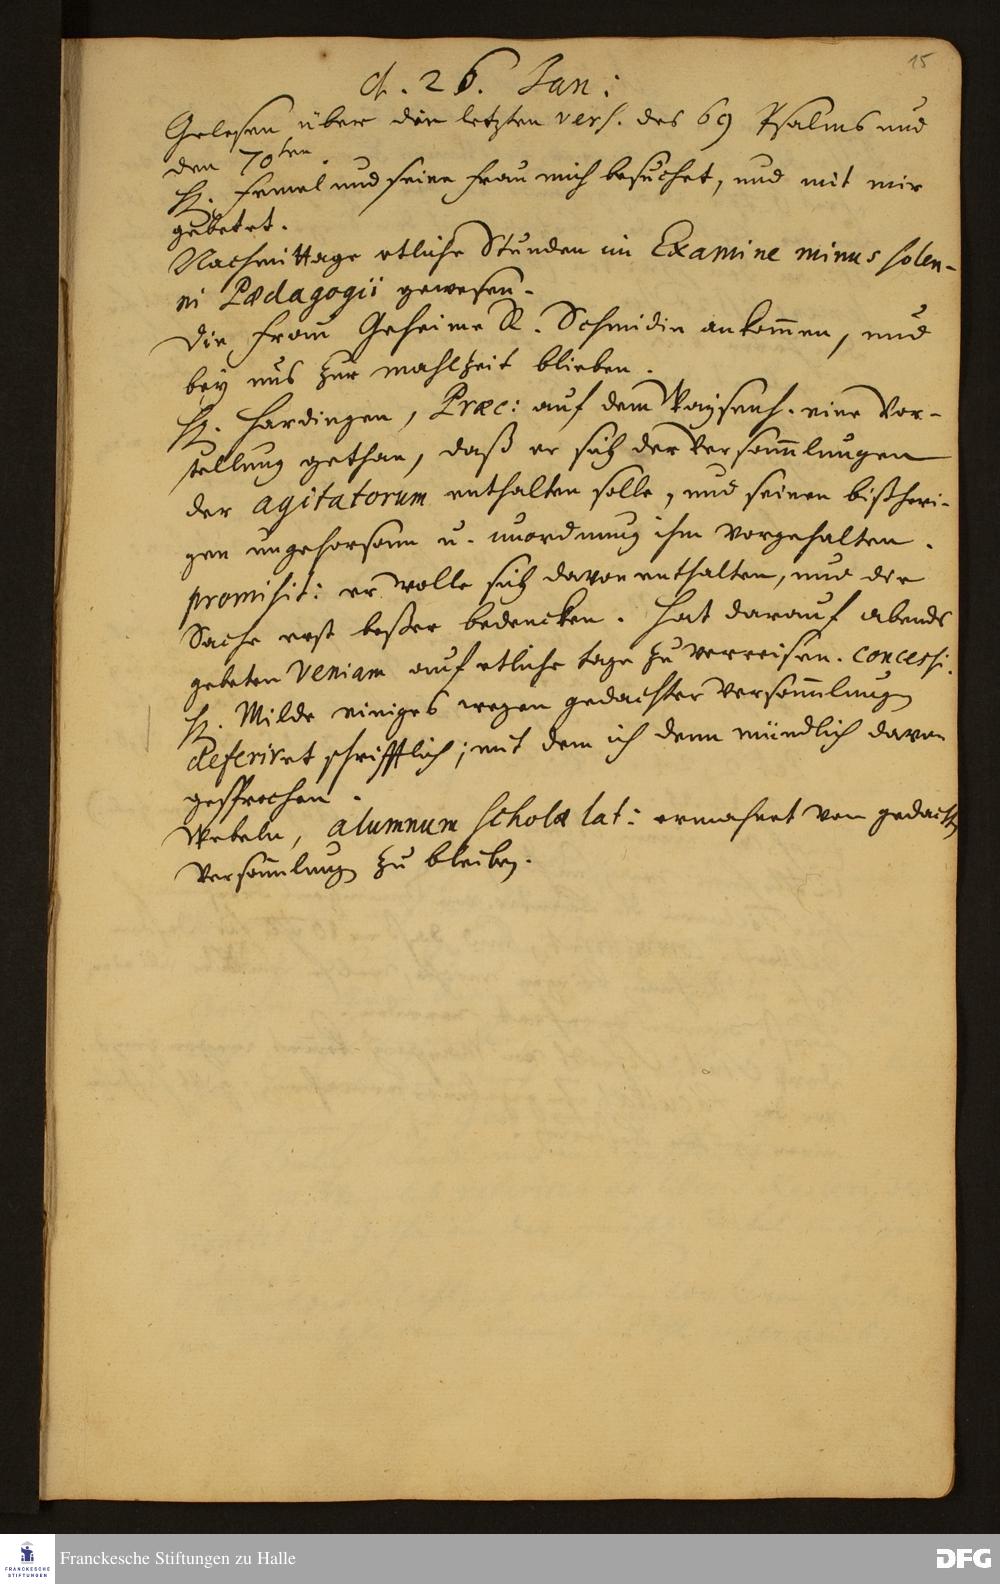 15
d. 26. Jan:
Gelesen über die letzten vers. des 69 Psalms und
den 70ten.
H. Femel und seine Frau mich besuchet, und mit mir
gebetet.
Nachmittage etliche Stunden im Examine minus solen-
ni Pædagogii gewesen.
Die Frau Geheime R. Schmidin ankom̄en, und
bey uns zur mahlzeit blieben.
H. Hardingen, Præc: auf dem Waysenh. eine Vor-
stellung gethan, daß er sich der Versam̄lungen
der agitatorum enthalten solle, und seinen bißheri-
gen ungehorsam u. unordnung ihm vorgehalten.
promisit: er wolle sich davon enthalten, und die
Sache erst beßer bedencken. Hat darauf abends
gebeten Veniam auf etliche tage zu verreisen. concessi.
H. Milde einiges wegen gedachter Versam̄lung
referiret schrifftlich; mit dem ich denn mündlich davon
gesprochen.
Webeln, alumnum scholæ lat: ermahnet von gedacht
Versam̄lung zu bleiben.
FRANCKESCHE
STIFTUNGEN
Franckesche Stiftungen zu Halle
DFG